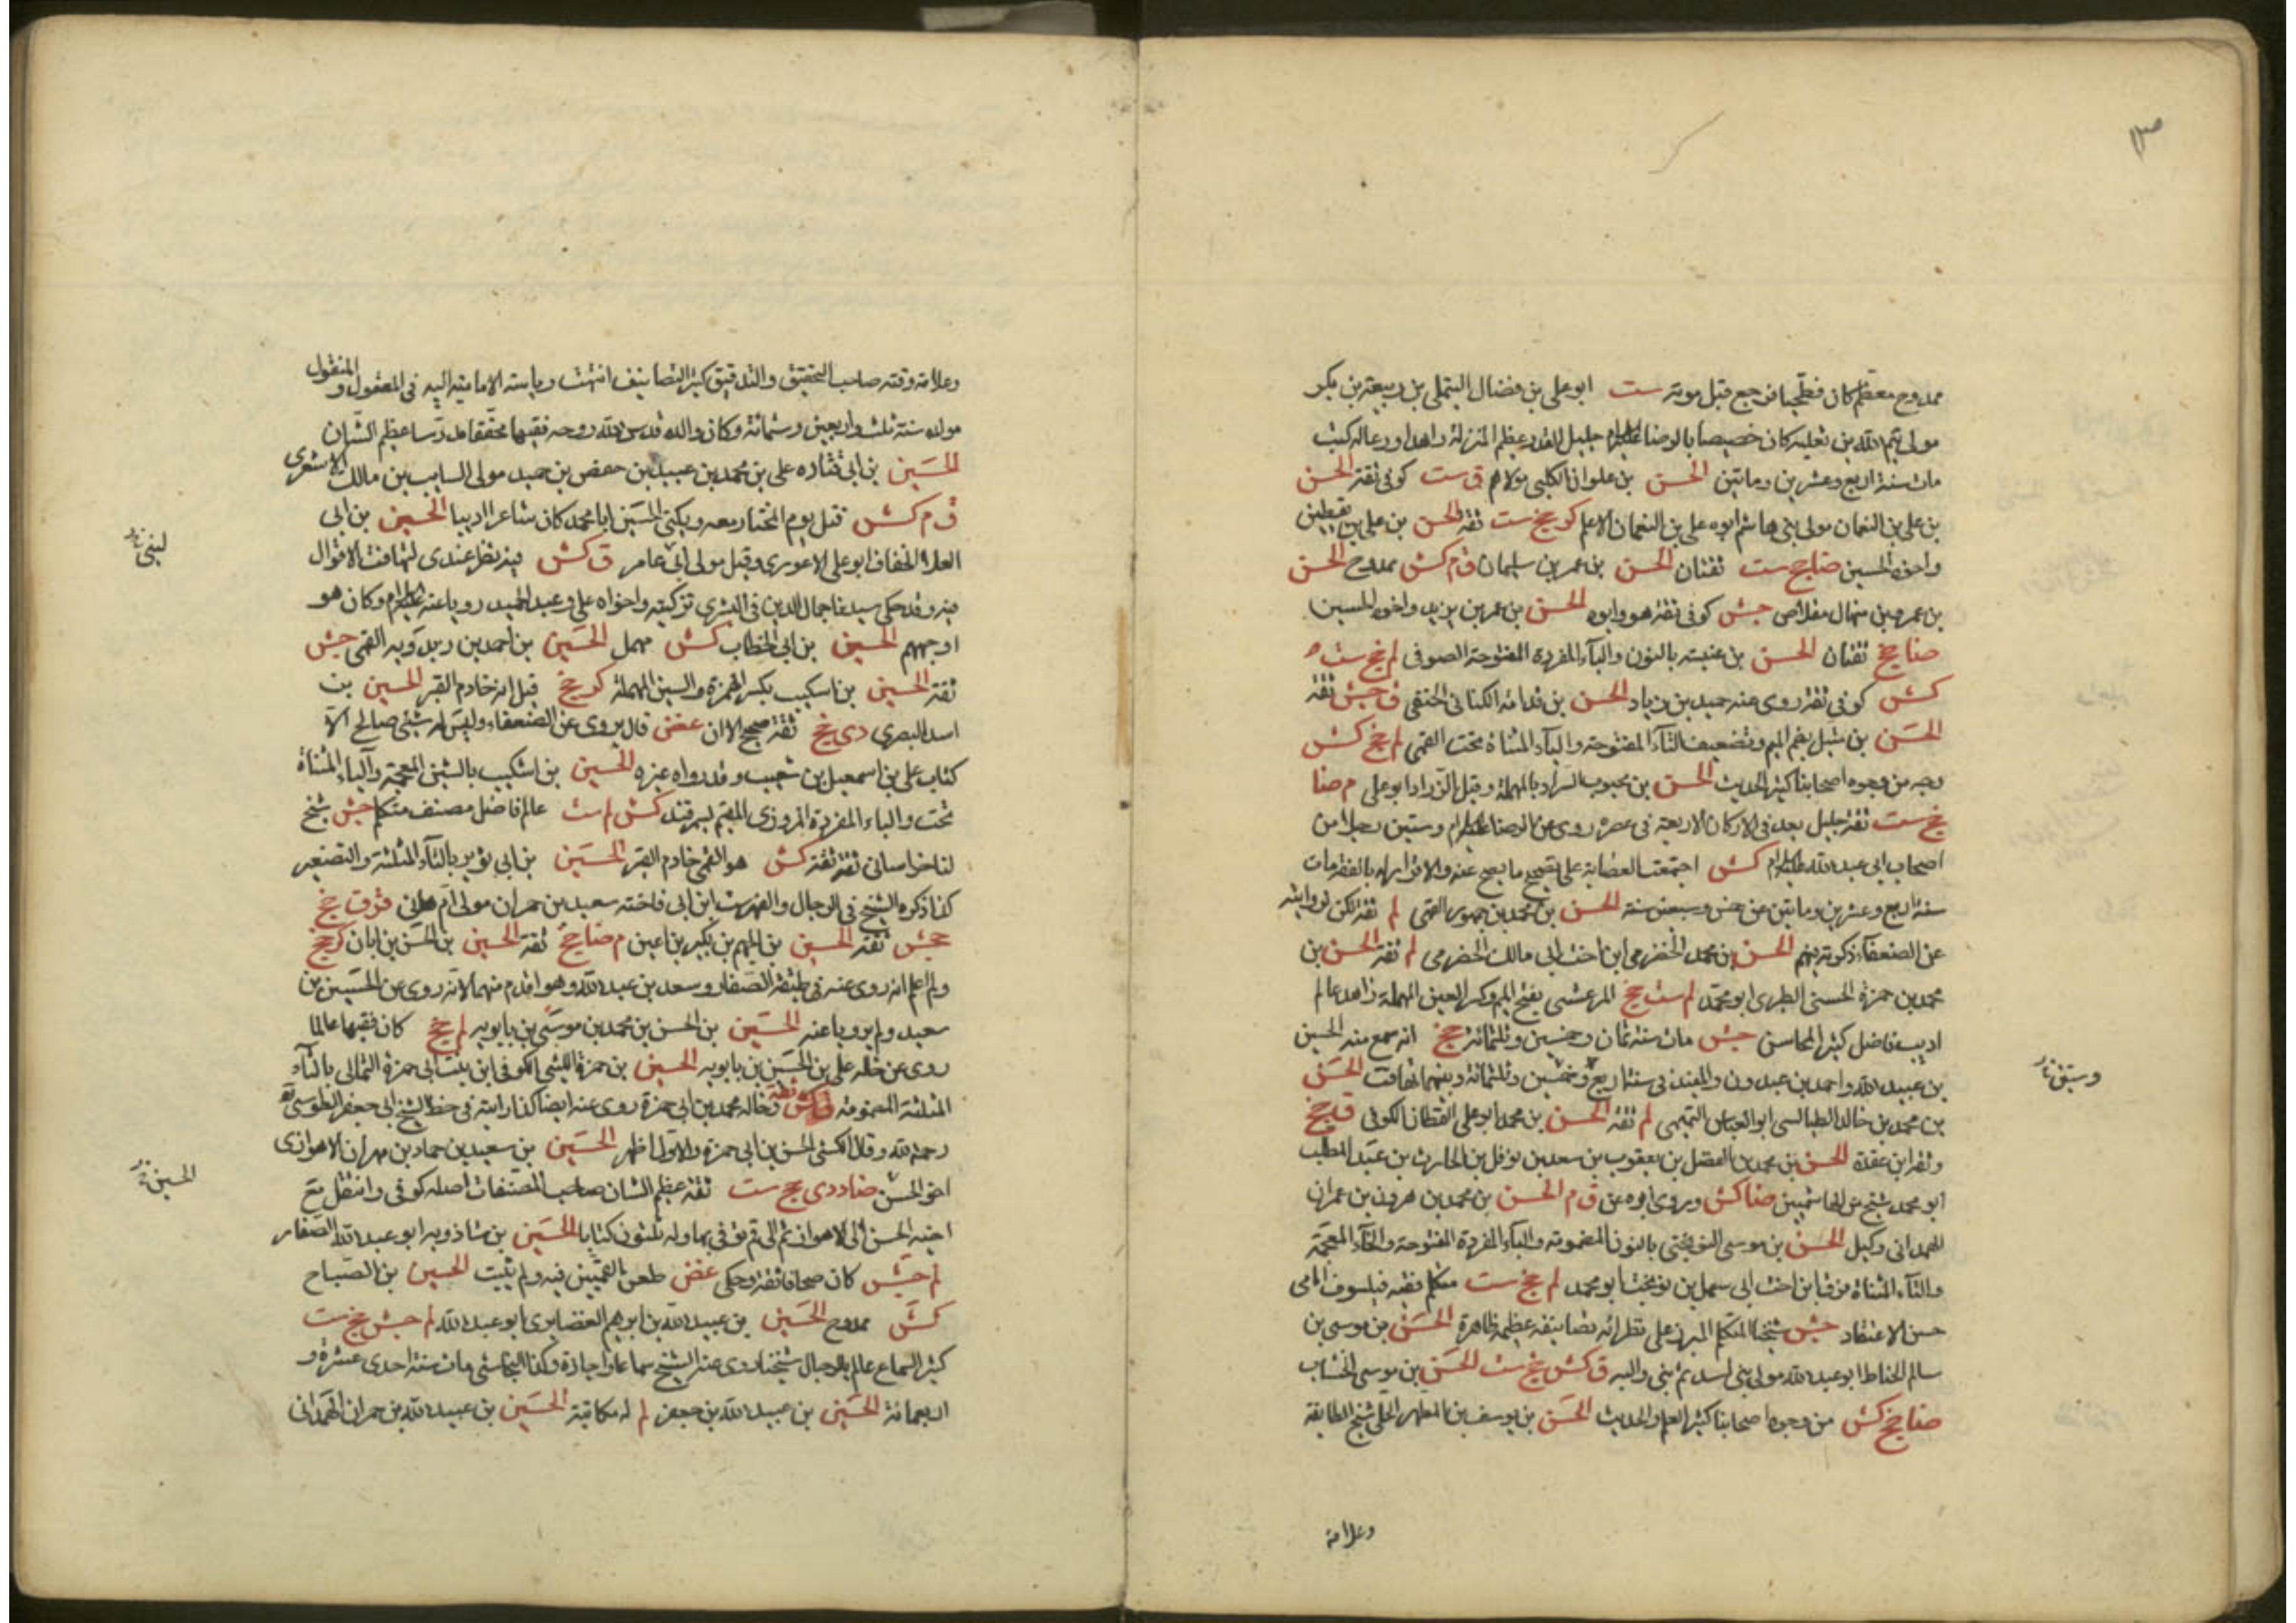 ممدوح معظم كان فطحيا فرجع قبل موته ست ابو علي بن فضال التيملي بن ربيعة بن بكر
مولى تيم الله بن ثعلبة كان خصيصا بالرضا عليه السلام جليل القدر عظيم المنزلة زاهدا ورعا له كتب
مات سنة اربع وعشرين ومائتين الحسن بن علوان الكلبي مولاهم ق ست كوفي ثقة الحسن
بن علي بن النعمان مولى بني هاشم ابوه علي بن النعمان الاعلم كر جخ ست ثقة الحسن بن علي بن يقطين
واخوه الحسين ضا جخ ست ثقتان الحسن بن عمر بن سليمان ق م كش ممدوح الحسن
بن عمرو بن منهال مقلاص جش كوفي ثقة هو وابوه الحسن بن عمر بن يزيد واخوه الحسين
ضا جخ ثقتان الحسن بن عنبسة بالنون والباء المفردة المفتوحة الصوفي لم جخ ست
كش كوفي ثقة روى عنه حميد بن زياد الحسن بن قدامة الكناني الحنفي ق جش ثقة
الحسن بن متيل بضم الميم وتضعيف التاء المفتوحة والياء المثناة تحت القمي لم جخ كش
وجه من وجوه اصحابنا كثير الحديث الحسن بن محبوب السراد بالمهملة وقيل الزراد ابو علي م ضا
جخ ست ثقة جليل يعد في الاركان الاربعة في عصره روى عن الرضا عليه السلام وستين رجلا من
اصحاب ابي عبد الله عليه السلام كش اجتمعت العصابة على تصحيح ما يصح عنه والاقرار له بالفقه مات
سنة اربع وعشرين ومائتين عن خمس وسبعين سنة الحسن بن محمد بن جمهور القمي لم ثقة لكن لروايته
عن الضعفاء ذكرته فيهم الحسن بن محمد الحضرمي ابن اخت ابي مالك الحضرمي لم ثقة الحسن بن
محمد بن حمزة الحسني الطبري ابو محمد لم ست جخ المرعشي بفتح الميم وكسر العين المهملة زاهد عالم
اديب فاضل كثير المحاسن جش مات سنة ثمان وخمسين وثلثمائة جخ انه سمع منه الحسين
بن عبيد الله واحمد بن عبدون والمفيد في سنة اربع وخمسين وثلثمائة وبينهما تهافت الحسن
بن محمد بن خالد الطيالسي ابو العباس التميمي لم ثقة الحسن بن محمد ابو علي القطان الكوفي ق جخ
وثقه ابن عقدة الحسن بن محمد بن الفضل بن يعقوب بن سعد بن نوفل بن الحارث بن عبد المطلب
ابو محمد شيخ من الهاشميين ضا كش وروى ابوه عن ق م الحسن بن محمد بن هرون بن عمران
الهمداني وكيل الحسن بن موسى النوبختي بالنون المضمومة والباء المفردة المفتوحة والخاء المعجمة
والتاء المثناة فوق ابن اخت ابي سهل بن نوبخت ابو محمد لم جخ ست متكلم ثقة فيلسوف امامي
حسن الاعتقاد جش شيخنا المتكلم المبرز على نظرائه تصانيفه عظيمة ظاهرة الحسن بن موسى بن
سالم الخياط ابو عبد الله مولى بني اسد ثم بني والبة ق كش جخ ست الحسن بن موسى الخشاب
ضا جخ كش من وجوه اصحابنا كثير العلم والحديث الحسن بن يوسف بن المطهر الحلي شيخ الطايفة
وعلامة
وعلامة وقته صاحب التحقيق والتدقيق كثير التصانيف انتهت رياسة الامامية اليه في المعقول والمنقول
مولده سنة ثلث واربعين وستمائة وكان والده قدس الله روحه فقيها محققا مدرسا عظيم الشان
الحسين بن ابي قتاده علي بن محمد بن عبيد بن حفص بن حميد مولى السايب بن مالك الاشعري
ق م كش قتل يوم المختار معه ويكنى الحسين ابا محمد كان شاعرا اديبا الحسين بن ابي
العلاء الخفاف ابو علي الاعور وقيل مولى ابي عامر ق كش فيه نظر عندي لتهافت الاقوال
فيه وقد حكى سيدنا جمال الدين في البشرى تزكيته واخواه علي وعبد الحميد رويا عنه عليه السلام وكان هو
اوجههم الحسين بن ابي الخطاب كش مهمل الحسين بن احمد بن ريدويه القمي جش
ثقة الحسين بن اسكيب بكسر الهمزة والسين المهملة كر جخ قيل انه خادم القبر الحسين بن
اسد البصري دي جخ ثقة صحيح الا ان غض قال يروي عن الضعفاء وليس له شئ صالح الا
كتاب علي بن اسمعيل بن شعيب وقد رواه غيره الحسين بن اشكيب بالشين المعجمة والياء المثناة
تحت والباء المفردة المروزي المقيم بسمرقند كش لم ست عالم فاضل مصنف متكلم جش شيخ
لنا خراساني ثقة ثقة كش هو القمي خادم القبر الحسين بن ابي ثوير بالثاء المثلثة والتصغير
كذا ذكره الشيخ في الرجال والفهرست ابن ابي فاخته سعيد بن حمران مولى ام هاني قر ق جخ
جش ثقة الحسين بن الجهم بن بكير بن اعين م ضا جخ ثقة الحسين بن الحسن بن ابان كر جخ
ولم اعلم انه روى عنه في طبقة الصفار وسعد بن عبد الله وهو اقدم منهما لانه روى عن الحسين بن
سعيد ولم يرويا عنه الحسين بن الحسن بن محمد بن موسى بن بابويه لم جخ كان فقيها عالما
روى عن خاله علي بن الحسين بن بابويه الحسين بن حمزة الليثي الكوفي ابن بنت ابي حمزة الثمالي بالثاء
المثلثة المضمومة ق كش ثقة وخاله محمد بن ابي حمزة روى عنه ايضا كذا رايته في خط الشيخ ابي جعفر الطوسي
رحمه الله وقال الكشي الحسن بن ابي حمزة والاول اظهر الحسين بن سعيد بن حماد بن مهران الاهوازي
اخو الحسن ضا د دي جخ ست ثقة عظيم الشان صاحب المصنفات اصله كوفي وانتقل مع
اخيه الحسن الى الاهواز ثم الى قم توفي بها وله ثلثون كتابا الحسين بن شاذويه ابو عبد الله الصفار
لم جش كان صحافا ثقة وحكى غض طعن القميين فيه ولم يثبت الحسين بن الصباح
كش ممدوح الحسين بن عبيد الله بن ابرهيم الغضايري ابو عبد الله لم جش جخ ست
كثير السماع عالم بالرجال شيخنا روى عنه الشيخ سماعا واجازة وكذا النجاشي مات سنة احدى عشرة و
اربعمائة الحسين بن عبيد الله بن جعفر لم له مكاتبة الحسين بن عبيد الله بن حمران الهمداني